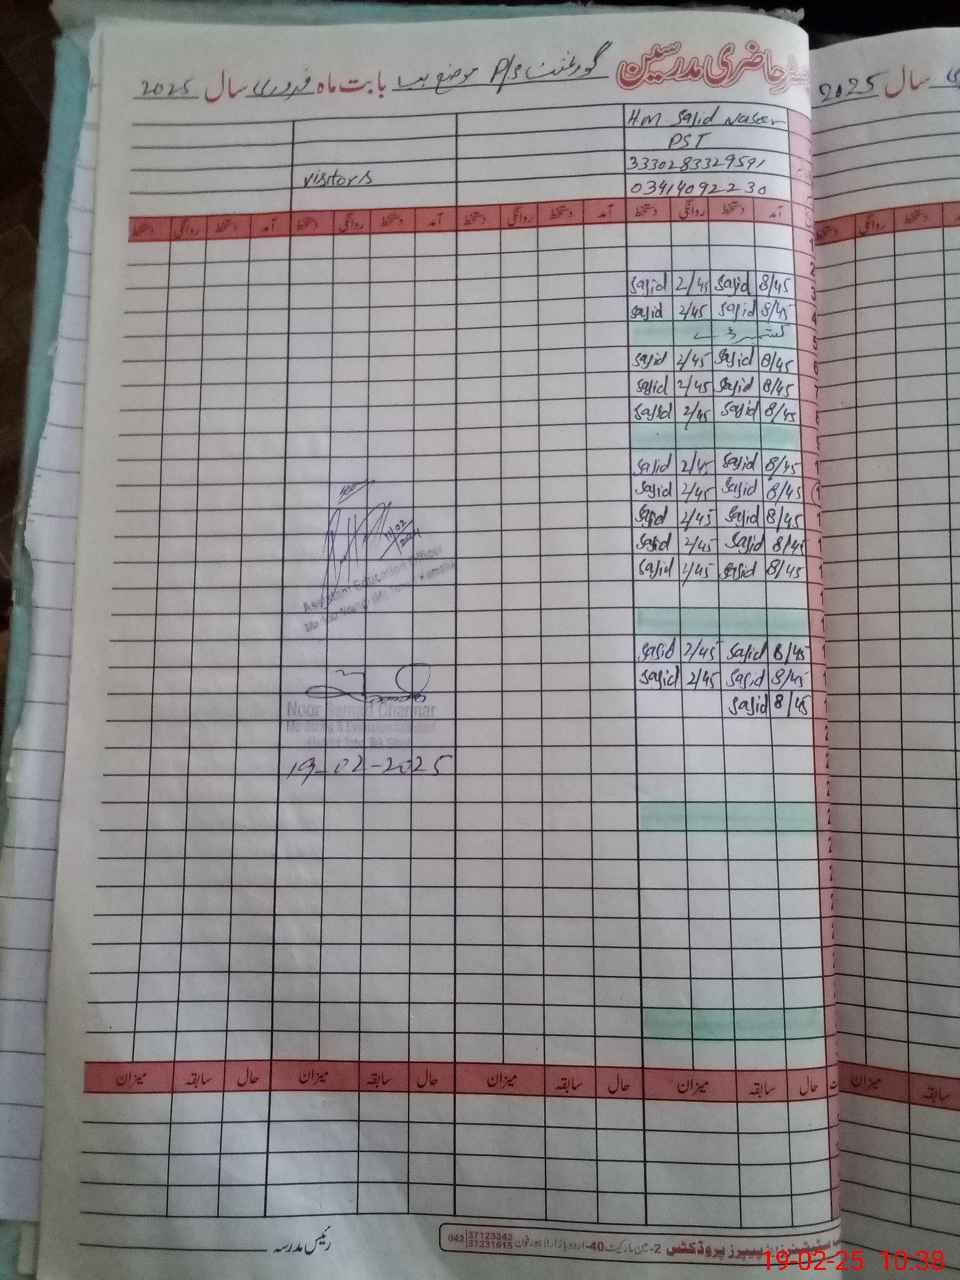 حاضری مدرسین گورنمنٹ P/s موضع بابت ماہ فروری سال 2025
سال 2025
HM Sajid Naseer
PST
3330283329591
visitors
03414092230
آمد دستخط روانگی دستخط آمد دستخط روانگی دستخط آمد دستخط روانگی دستخط آمد دستخط روانگی دستخط
دستخط روانگی دستخط
8/45 Sajid 2/45 Sajid
8/45 Sajid 2/45 Sajid
کشمیر ڈے
8/45 Sajid 2/45 Sajid
8/45 Sajid 2/45 Sajid
8/45 Sajid 2/45 Sajid
8/45 Sajid 2/45 Sajid
8/45 Sajid 2/45 Sajid
8/45 Sajid 2/45 Sajid
8/45 Sajid 2/45 Sajid
8/45 Sajid 2/45 Sajid
11/02
Assistant Education Officer
8/45 Sajid 2/45 Sajid
8/45 Sajid 2/45 Sajid
8/45 Sajid
Noor
19-02-2025
حال سابقہ میزان حال سابقہ میزان حال سابقہ میزان حال سابقہ میزان
سابقہ میزان
رئیس مدرسہ
پیپرز پروڈکٹس 2-مین مارکیٹ 40-اردو بازار لاہور فون 042 37123342
37231915
19-02-25 10:38